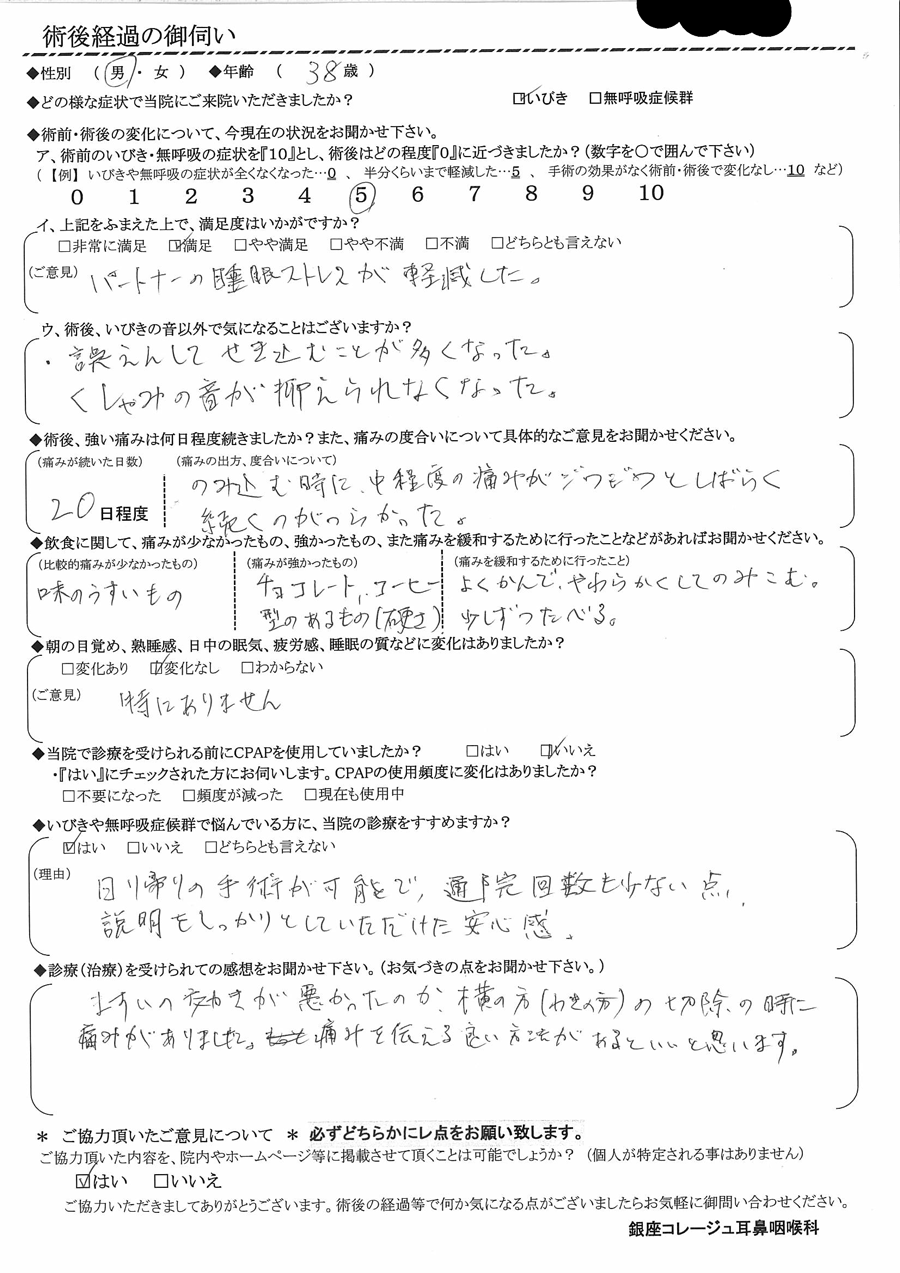 術後経過の御伺い
◆性別 （ 男 ・ 女 ） ◆年齢 （ 38 歳 ）
◆どの様な症状で当院にご来院いただきましたか？ ☑いびき □無呼吸症候群
◆術前・術後の変化について、今現在の状況をお聞かせ下さい。
ア、術前のいびき・無呼吸の症状を『10』とし、術後はどの程度『0』に近づきましたか？（数字を○で囲んで下さい）
（【例】いびきや無呼吸の症状が全くなくなった…0 、 半分くらいまで軽減した…5 、 手術の効果がなく術前・術後で変化なし…10 など）
0 1 2 3 4 5 6 7 8 9 10
イ、上記をふまえた上で、満足度はいかがですか？
□非常に満足 ☑満足 □やや満足 □やや不満 □不満 □どちらとも言えない
（ご意見） パートナーの睡眠ストレスが軽減した。
ウ、術後、いびきの音以外で気になることはございますか？
・誤えんして せき込むことが多くなった。
くしゃみの音が抑えられなくなった。
◆術後、強い痛みは何日程度続きましたか？また、痛みの度合いについて具体的なご意見をお聞かせください。
（痛みが続いた日数） （痛みの出方、度合いについて）
20 日程度 のみ込む時に、中程度の痛みがジワジワとしばらく
続くのがつらかった。
◆飲食に関して、痛みが少なかったもの、強かったもの、また痛みを緩和するために行ったことなどがあればお聞かせください。
（比較的痛みが少なかったもの） （痛みが強かったもの） （痛みを緩和するために行ったこと）
味のうすいもの チョコレート、コーヒー よくかんで、やわらかくしてのみこむ。
型のあるもの（硬さ） 少しずつたべる。
◆朝の目覚め、熟睡感、日中の眠気、疲労感、睡眠の質などに変化はありましたか？
□変化あり ☑変化なし □わからない
（ご意見） 特にありません
◆当院で診療を受けられる前にCPAPを使用していましたか？ □はい ☑いいえ
・『はい』にチェックされた方にお伺いします。CPAPの使用頻度に変化はありましたか？
□不要になった □頻度が減った □現在も使用中
◆いびきや無呼吸症候群で悩んでいる方に、当院の診療をすすめますか？
☑はい □いいえ □どちらとも言えない
（理由） 日り帰りの手術が可能で、通院回数も少ない点、
説明をしっかりとしていただけた安心感、
◆診療（治療）を受けられての感想をお聞かせ下さい。（お気づきの点をお聞かせ下さい。）
ますいの効きが悪かったのか、横の方（わきの方）の切除の時に
痛みがありました。痛みを伝える良い方法があるといいと思います。
＊ ご協力頂いたご意見について ＊ 必ずどちらかにレ点をお願い致します。
ご協力頂いた内容を、院内やホームページ等に掲載させて頂くことは可能でしょうか？ （個人が特定される事はありません）
☑はい □いいえ
ご協力いただきましてありがとうございます。術後の経過等で何か気になる点がございましたらお気軽に御問い合わせください。
銀座コレージュ耳鼻咽喉科